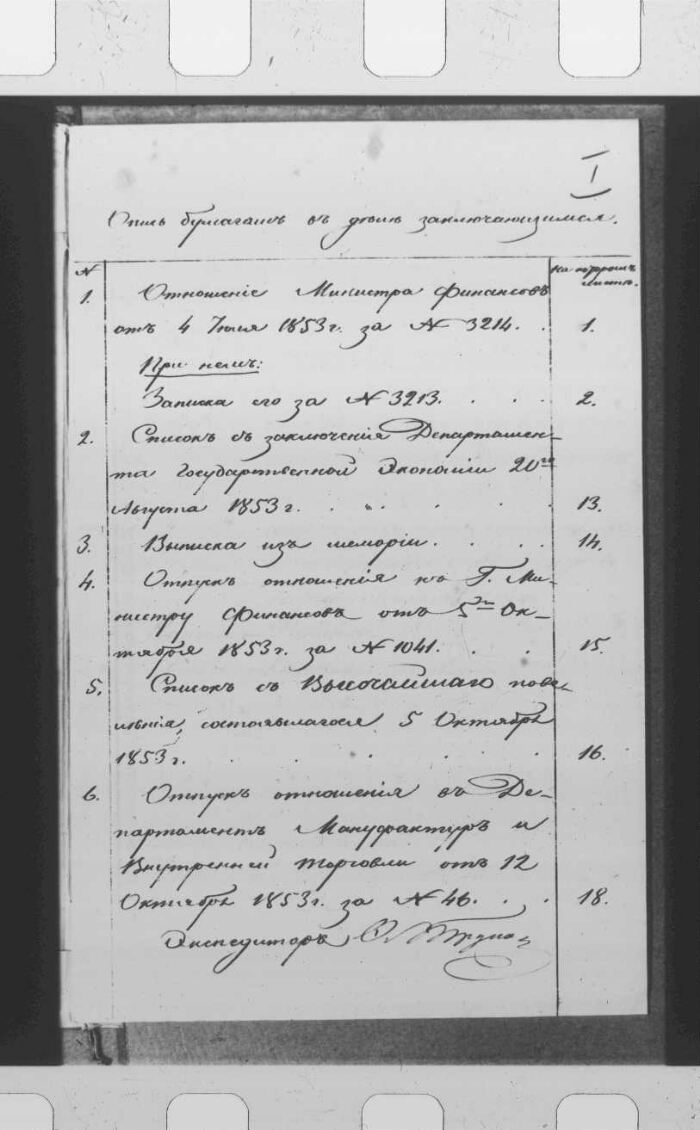 I
Опись бумагамъ въ дѣлѣ заключающимся.
№
На которомъ
листѣ.
1. Отношеніе Министра Финансовъ
отъ 4 Іюля 1853 г. за № 3214. . 1.
При немъ:
Записка его за № 3213. . . . 2.
2. Списокъ съ заключенія Департамен-
та Государственной Экономіи 20го
Августа 1853 г. . . . . . 13.
3. Выписка изъ меморіи. . . . 14.
4. Отпускъ отношенія къ Г. Ми-
нистру Финансовъ отъ 5го Ок-
тября 1853 г. за № 1041. . . 15.
5. Списокъ съ Высочайшаго пове-
лѣнія, состоявшагося 5 Октября
1853 г. . . . . . 16.
6. Отпускъ отношенія въ Де-
партаментъ Мануфактуръ и
Внутренней торговли отъ 12
Октября 1853 г. за № 46. . . 18.
Экспедиторъ